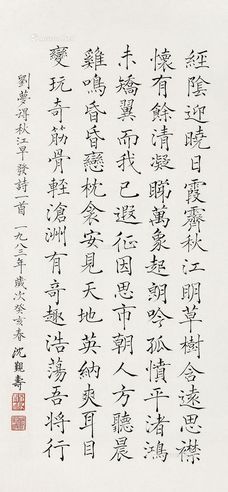 經陰迎曉日霞霽秋江明草樹含遠思襟
懷有餘清凝睇萬象起朗吟孤憤平渚鴻
未矯翼而我已遐征因思市朝人方聽晨
雞鳴昏昏戀枕衾安見天地英納爽耳目
變玩奇筋骨輕滄洲有奇趣浩蕩吾將行
劉夢得秋江早發詩一首 一九八三年歲次癸亥春 沈覲壽